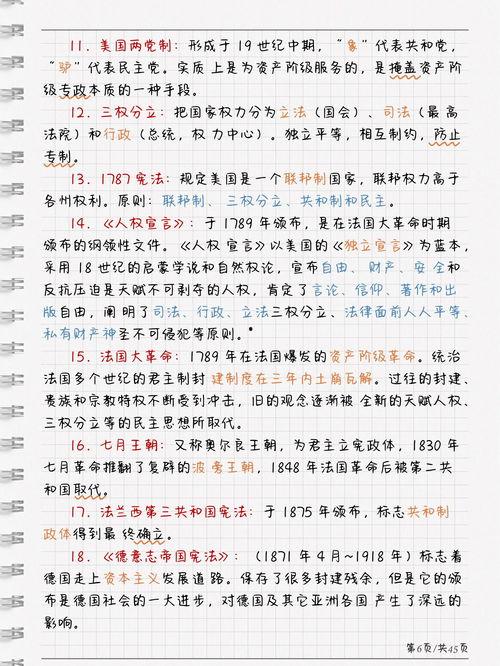 11. 美国两党制：形成于 19 世纪中期，“象”代表共和党，
“驴”代表民主党。实质上是为资产阶级服务的，是掩盖资产阶
级专政本质的一种手段。
12. 三权分立：把国家权力分为立法（国会）、司法（最高
法院）和行政（总统，权力中心）。独立平等，相互制约，防止
专制。
13. 1787 宪法：规定美国是一个联邦制国家，联邦权力高于
各州权利。原则：联邦制、三权分立、共和制和民主。
14. 《人权宣言》：于 1789 年颁布，是在法国大革命时期
颁布的纲领性文件。《人权宣言》以美国的《独立宣言》为蓝本，
采用 18 世纪的启蒙学说和自然权论，宣布自由、财产、安全和
反抗压迫是天赋不可剥夺的人权，肯定了言论、信仰、著作和出
版自由，阐明了司法、行政、立法三权分立、法律面前人人平等、
私有财产神圣不可侵犯等原则。
15. 法国大革命：1789 年在法国爆发的资产阶级革命。统治
法国多个世纪的君主制封建制度在三年内土崩瓦解。过往的封建、
贵族和宗教特权不断受到冲击，旧的观念逐渐被全新的天赋人权、
三权分立等的民主思想所取代。
16. 七月王朝：又称奥尔良王朝，为君主立宪政体，1830 年
七月革命推翻了复辟的波旁王朝，1848 年法国革命后被第二共
和国取代。
17. 法兰西第三共和国宪法：于 1875 年颁布，标志共和制
政体得到最终确立。
18. 《德意志帝国宪法》：（1871 年 4 月~1918 年）标志着
德国走上资本主义发展道路。保存了很多封建残余，但是它的颁
布是德国社会的一大进步，对德国及其它亚洲各国产生了深远的
影响。
第6页/共45页